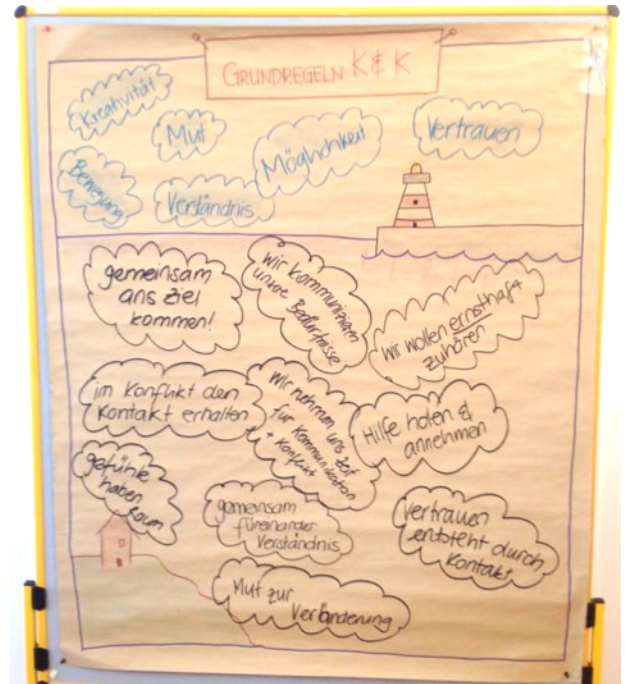 GRUNDREGELN K & K
Kreativität
Mut
Möglichkeit
Vertrauen
Bewegung
Verständnis
gemeinsam
ans Ziel
kommen!
wir kommunizieren
unsre Bedürfnisse
Wir wollen ernsthaft
zuhören
im Konflikt den
Kontakt erhalten
Wir nehmen uns Zeit
für Kommunikation
+ Konflikt
Hilfe holen &
annehmen
gefühle
haben
Raum
gemeinsam
füreinander
Verständnis
Vertrauen
entsteht durch
Kontakt
Mut zur
Veränderung